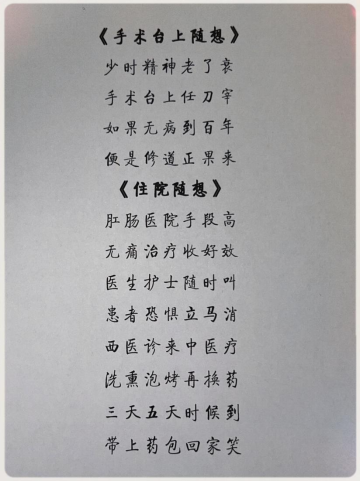 《手术台上随想》
少时精神老了衰
手术台上任刀宰
如果无病到百年
便是修道正果来
《住院随想》
肛肠医院手段高
无痛治疗收好效
医生护士随时叫
患者恐惧立马消
西医诊来中医疗
洗熏泡烤再换药
三天五天时候到
带上药包回家笑